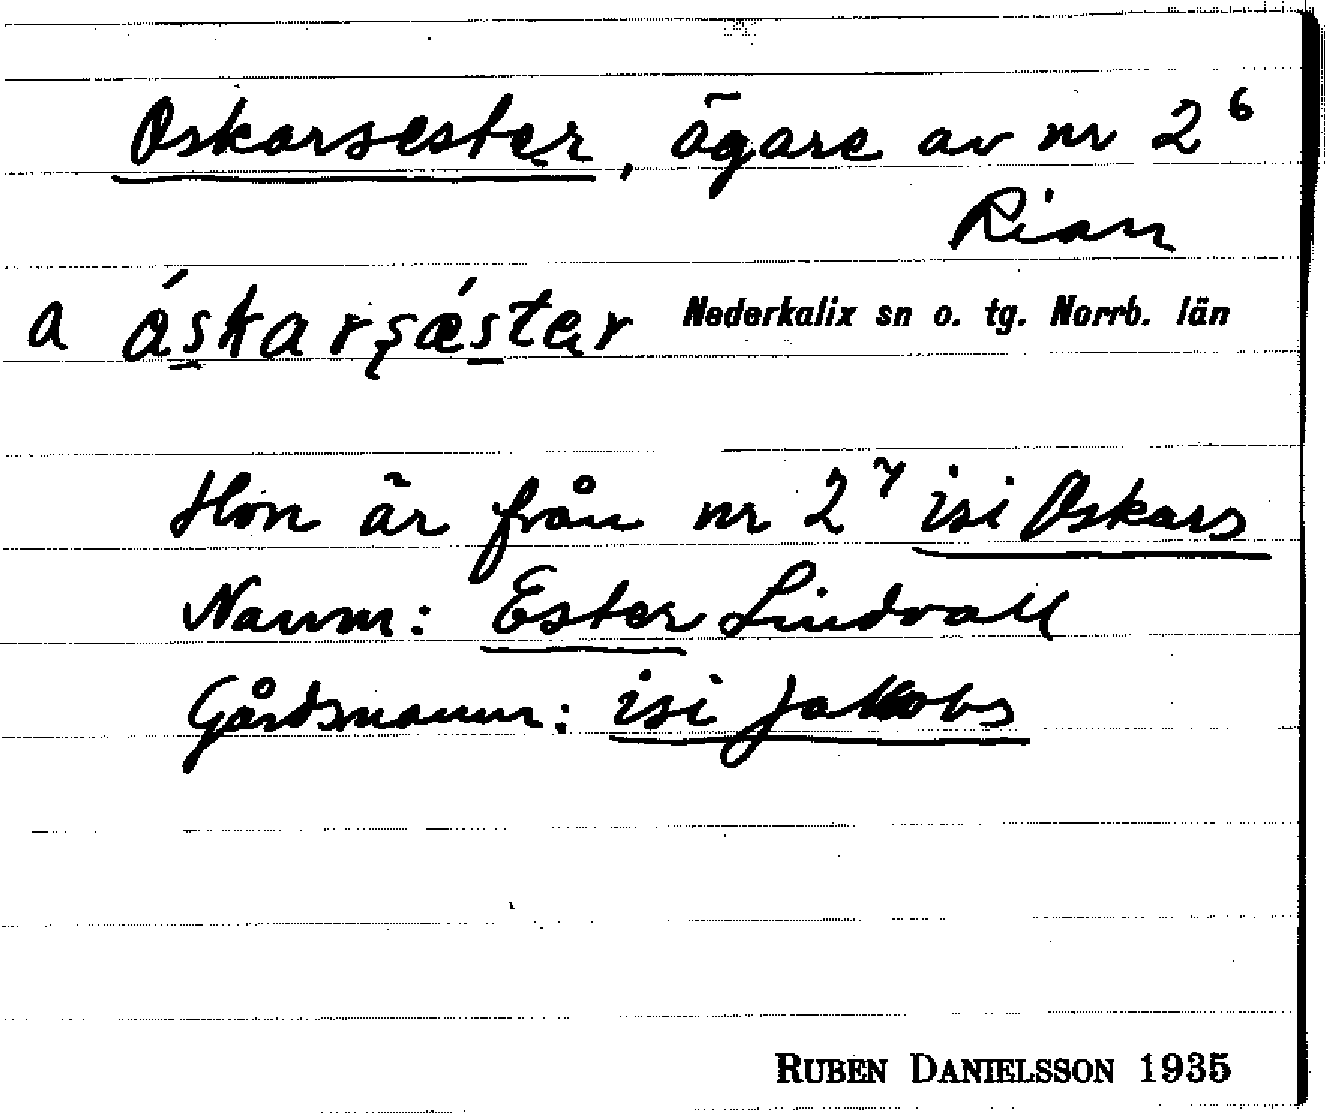 Oskarsester, ägare av nr 2⁶
Rian
a áskarsǽstər Nederkalix sn o. tg. Norrb. län
Hon är från nr 2⁷ isi Oskars
Namn: Ester Lindvall
Gårdsnamn: isi Jakobs
RUBEN DANIELSSON 1935